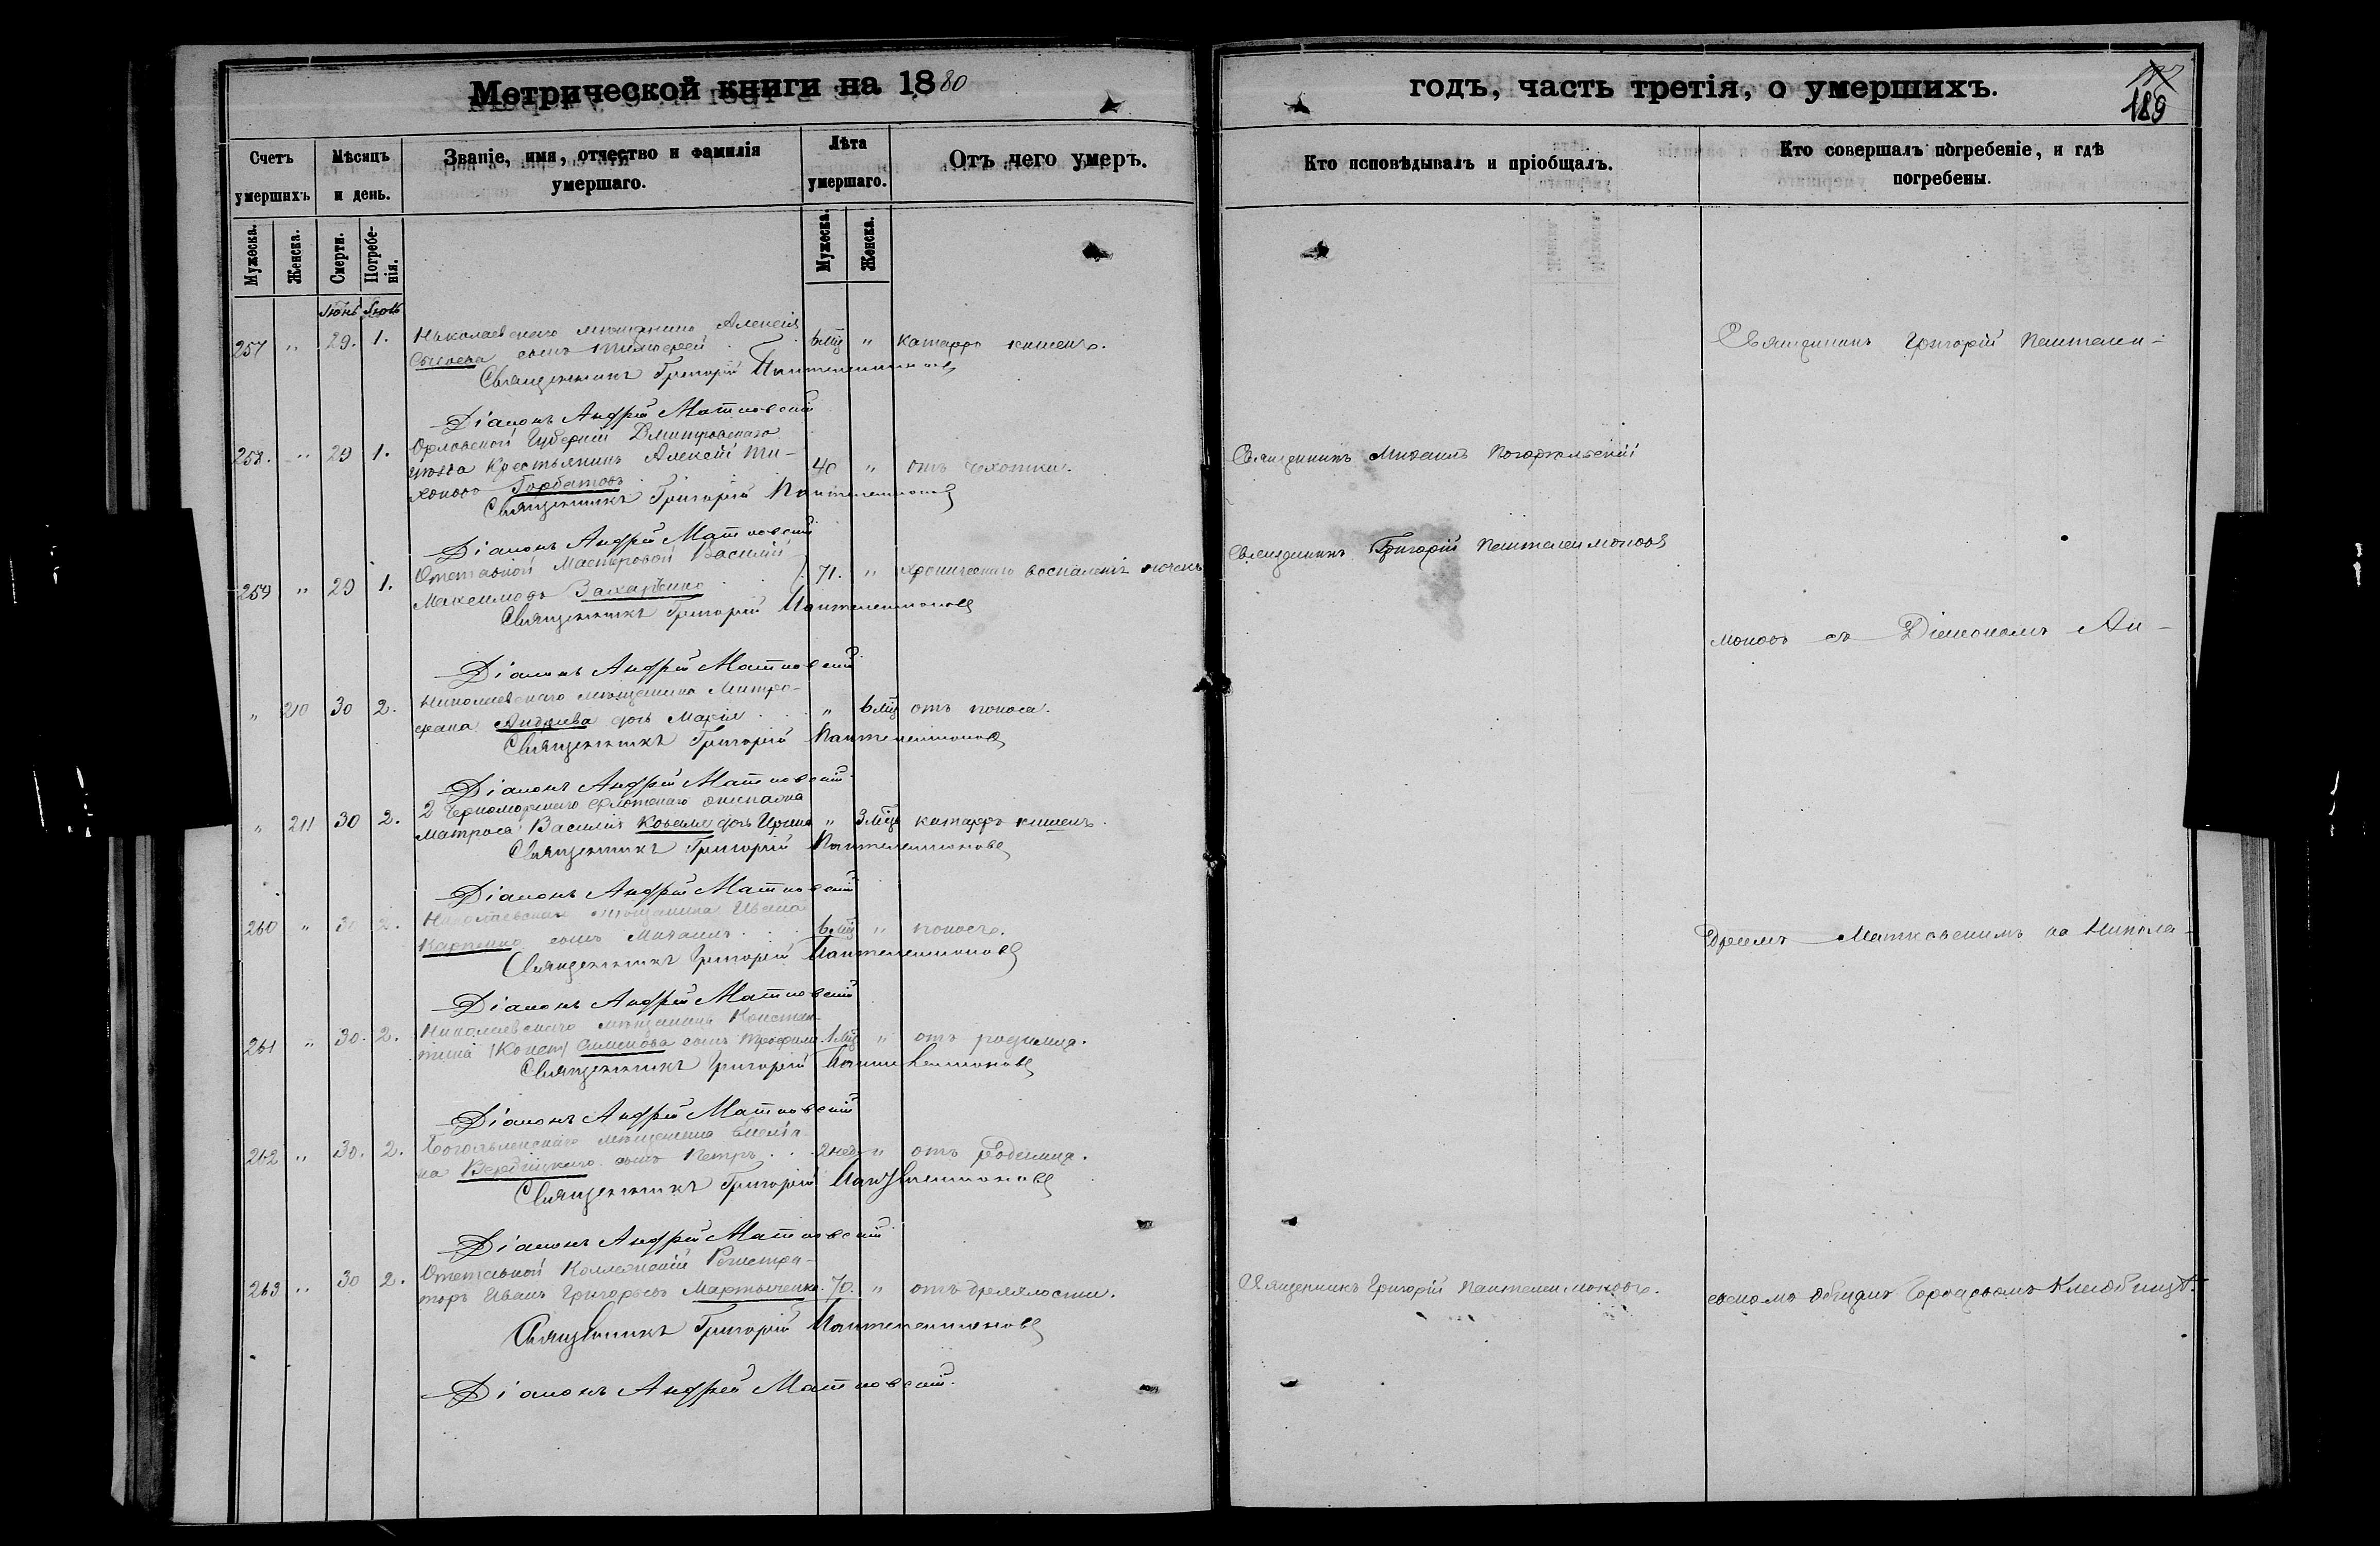 Метрической книги на 1880
Счетъ умершихъ
Мѣсяцъ и день.
Званіе, имя, отчество и фамилія умершаго.
Лѣта умершаго.
Отъ чего умеръ.
Мужеска.
Женска.
Смерти.
Погребенія.
Мужеска.
Женска.
Іюнь Іюль
257 " 29. 1. Николаевскаго мѣщанина Алексѣя
сынъ Тимофей 6 мц " катарръ кишекъ.
Священникъ Григорій Пантелеимоновъ
Діаконъ Андрей Матковскій
258. " 29 1. Орловской Губерніи Дмитровскаго
уѣзда Крестьянинъ Алексѣй Ти-
хоновъ Горбатовъ 40 " отъ чахотки.
Священникъ Григорій Пантелеимоновъ
Діаконъ Андрей Матковскій
259 " 29 1. Отставной Мастеровой Василій
Максимовъ Захарченко 71. " хроническаго воспаленія почекъ
Священникъ Григорій Пантелеимоновъ
Діаконъ Андрей Матковскій
" 210 30 2. Николаевскаго мѣщанина Митро-
фана Андреева дочь Марія " 6 мц отъ поноса.
Священникъ Григорій Пантелеимоновъ
Діаконъ Андрей Матковскій
" 211 30 2. 2 Черноморскаго флотскаго экипажа
матроса Василія дочь Ирина " 3 мц катарръ кишекъ.
Священникъ Григорій Пантелеимоновъ
Діаконъ Андрей Матковскій
260 " 30 2. Николаевскаго мѣщанина Ивана
Карпенко сынъ Михаилъ 6 мц " поносъ.
Священникъ Григорій Пантелеимоновъ
Діаконъ Андрей Матковскій
261 " 30. 2. Николаевскаго мѣщанина Констан-
тина Симонова сынъ Трофимъ 1 мц " отъ родимца.
Священникъ Григорій Пантелеимоновъ
Діаконъ Андрей Матковскій
262 " 30. 2. мѣщанина
на сынъ Петръ 2 нед " отъ Родимца.
Священникъ Григорій Пантелеимоновъ
Діаконъ Андрей Матковскій
263 " 30 2. Отставной Коллежскій Регистра-
торъ Иванъ Григорьевъ Мартыненко. 70. " отъ дряхлости.
Священникъ Григорій Пантелеимоновъ
Діаконъ Андрей Матковскій.
годъ, часть третія, о умершихъ.
189
Кто исповѣдывалъ и пріобщалъ.
Кто совершалъ погребеніе, и гдѣ погребены.
Священникъ Григорій Пантелеи-
Священникъ Михаилъ
Священникъ Григорій Пантелеимоновъ
моновъ съ Діакономъ Ан-
дреемъ Матковскимъ на Никола-
Священникъ Григорій Пантелеимоновъ.
евскомъ общемъ Городскомъ Кладбищѣ.